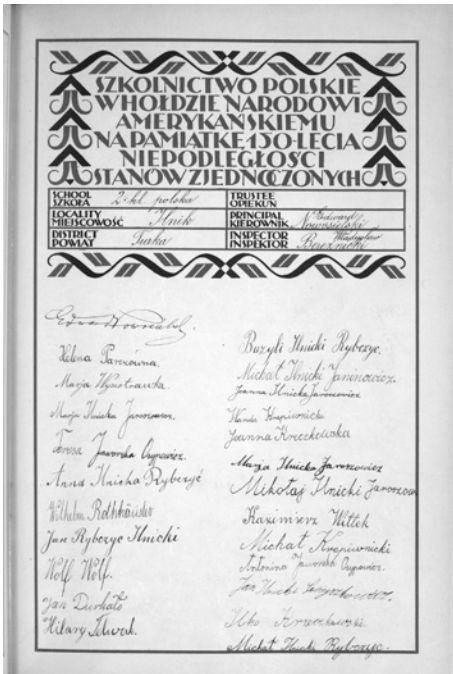 SZKOLNICTWO POLSKIE
W HOŁDZIE NARODOWI
AMERYKAŃSKIEMU
NA PAMIĄTKĘ 150-LECIA
NIEPODLEGŁOŚCI
STANÓW ZJEDNOCZONYCH
SCHOOL
SZKOŁA
2-kl. polska
TRUSTEE
OPIEKUN
LOCALITY
MIEJSCOWOŚĆ
Ilnik
PRINCIPAL
KIEROWNIK
Edward
Nowosielski
DISTRICT
POWIAT
Turka
INSPECTOR
INSPEKTOR
Władysław
Bereźnicki
Helena
Marja
Marja Ilnicka Jaroszowicz
Teresa Jaworska Osypowicz.
Anna Ilnicka Rybczyć
Wilhelm Rothhäuster
Jan Rybczyc Ilnicki
Wolf Wolf.
Jan Durkało
Hilary
Bazyli Ilnicki Rybczyc.
Michał Ilnicki Janinowicz.
Joanna Ilnicka Jaroszowicz
Wanda Krapiwnicka
Joanna Krzeczkowska
Marja Ilnicka Jaroszowicz
Mikołaj Ilnicki Jaroszow
Kazimierz Wittek
Michał Krapiwnicki
Antonina Jaworska Osypowicz.
Jan Ilnicki
Ilko Krzeczkowski.
Michał Ilnicki Rybczyc.